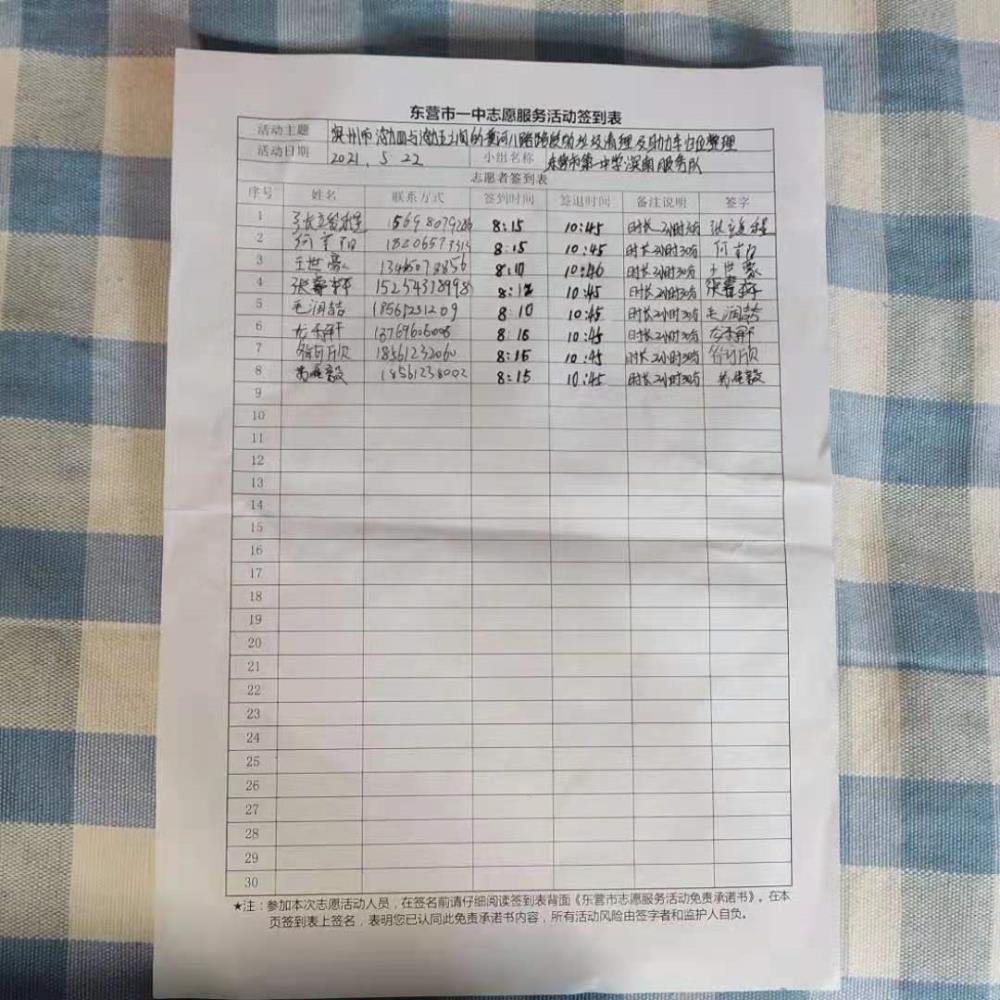 东营市一中志愿服务活动签到表
活动主题 滨州市渤四与渤五之间的黄河八路路段垃圾清理及助力车占位整理
活动日期 2021.5.22 小组名称 东营市第一中学滨南服务队
志愿者签到表
序号 姓名 联系方式 签到时间 签退时间 备注说明 签字
1 8:15 10:45 时长2小时30分
2 何 8:15 10:45 时长2小时30分 何
3 王世豪 8:10 10:46 时长2小时30分 王世豪
4 张 15254318998 8:12 10:45 时长2小时30分 张
5 毛润喆 18561231209 8:10 10:45 时长2小时30分 毛润喆
6 8:15 10:45 时长2小时30分
7 18561232060 8:15 10:45 时长2小时30分
8 18561238002 8:15 10:45 时长2小时30分
9
10
11
12
13
14
15
16
17
18
19
20
21
22
23
24
25
26
27
28
29
30
★注：参加本次志愿活动人员，在签名前请仔细阅读签到表背面《东营市志愿服务活动免责承诺书》。在本
页签到表上签名，表明您已认同此免责承诺书内容，所有活动风险由签字者和监护人自负。